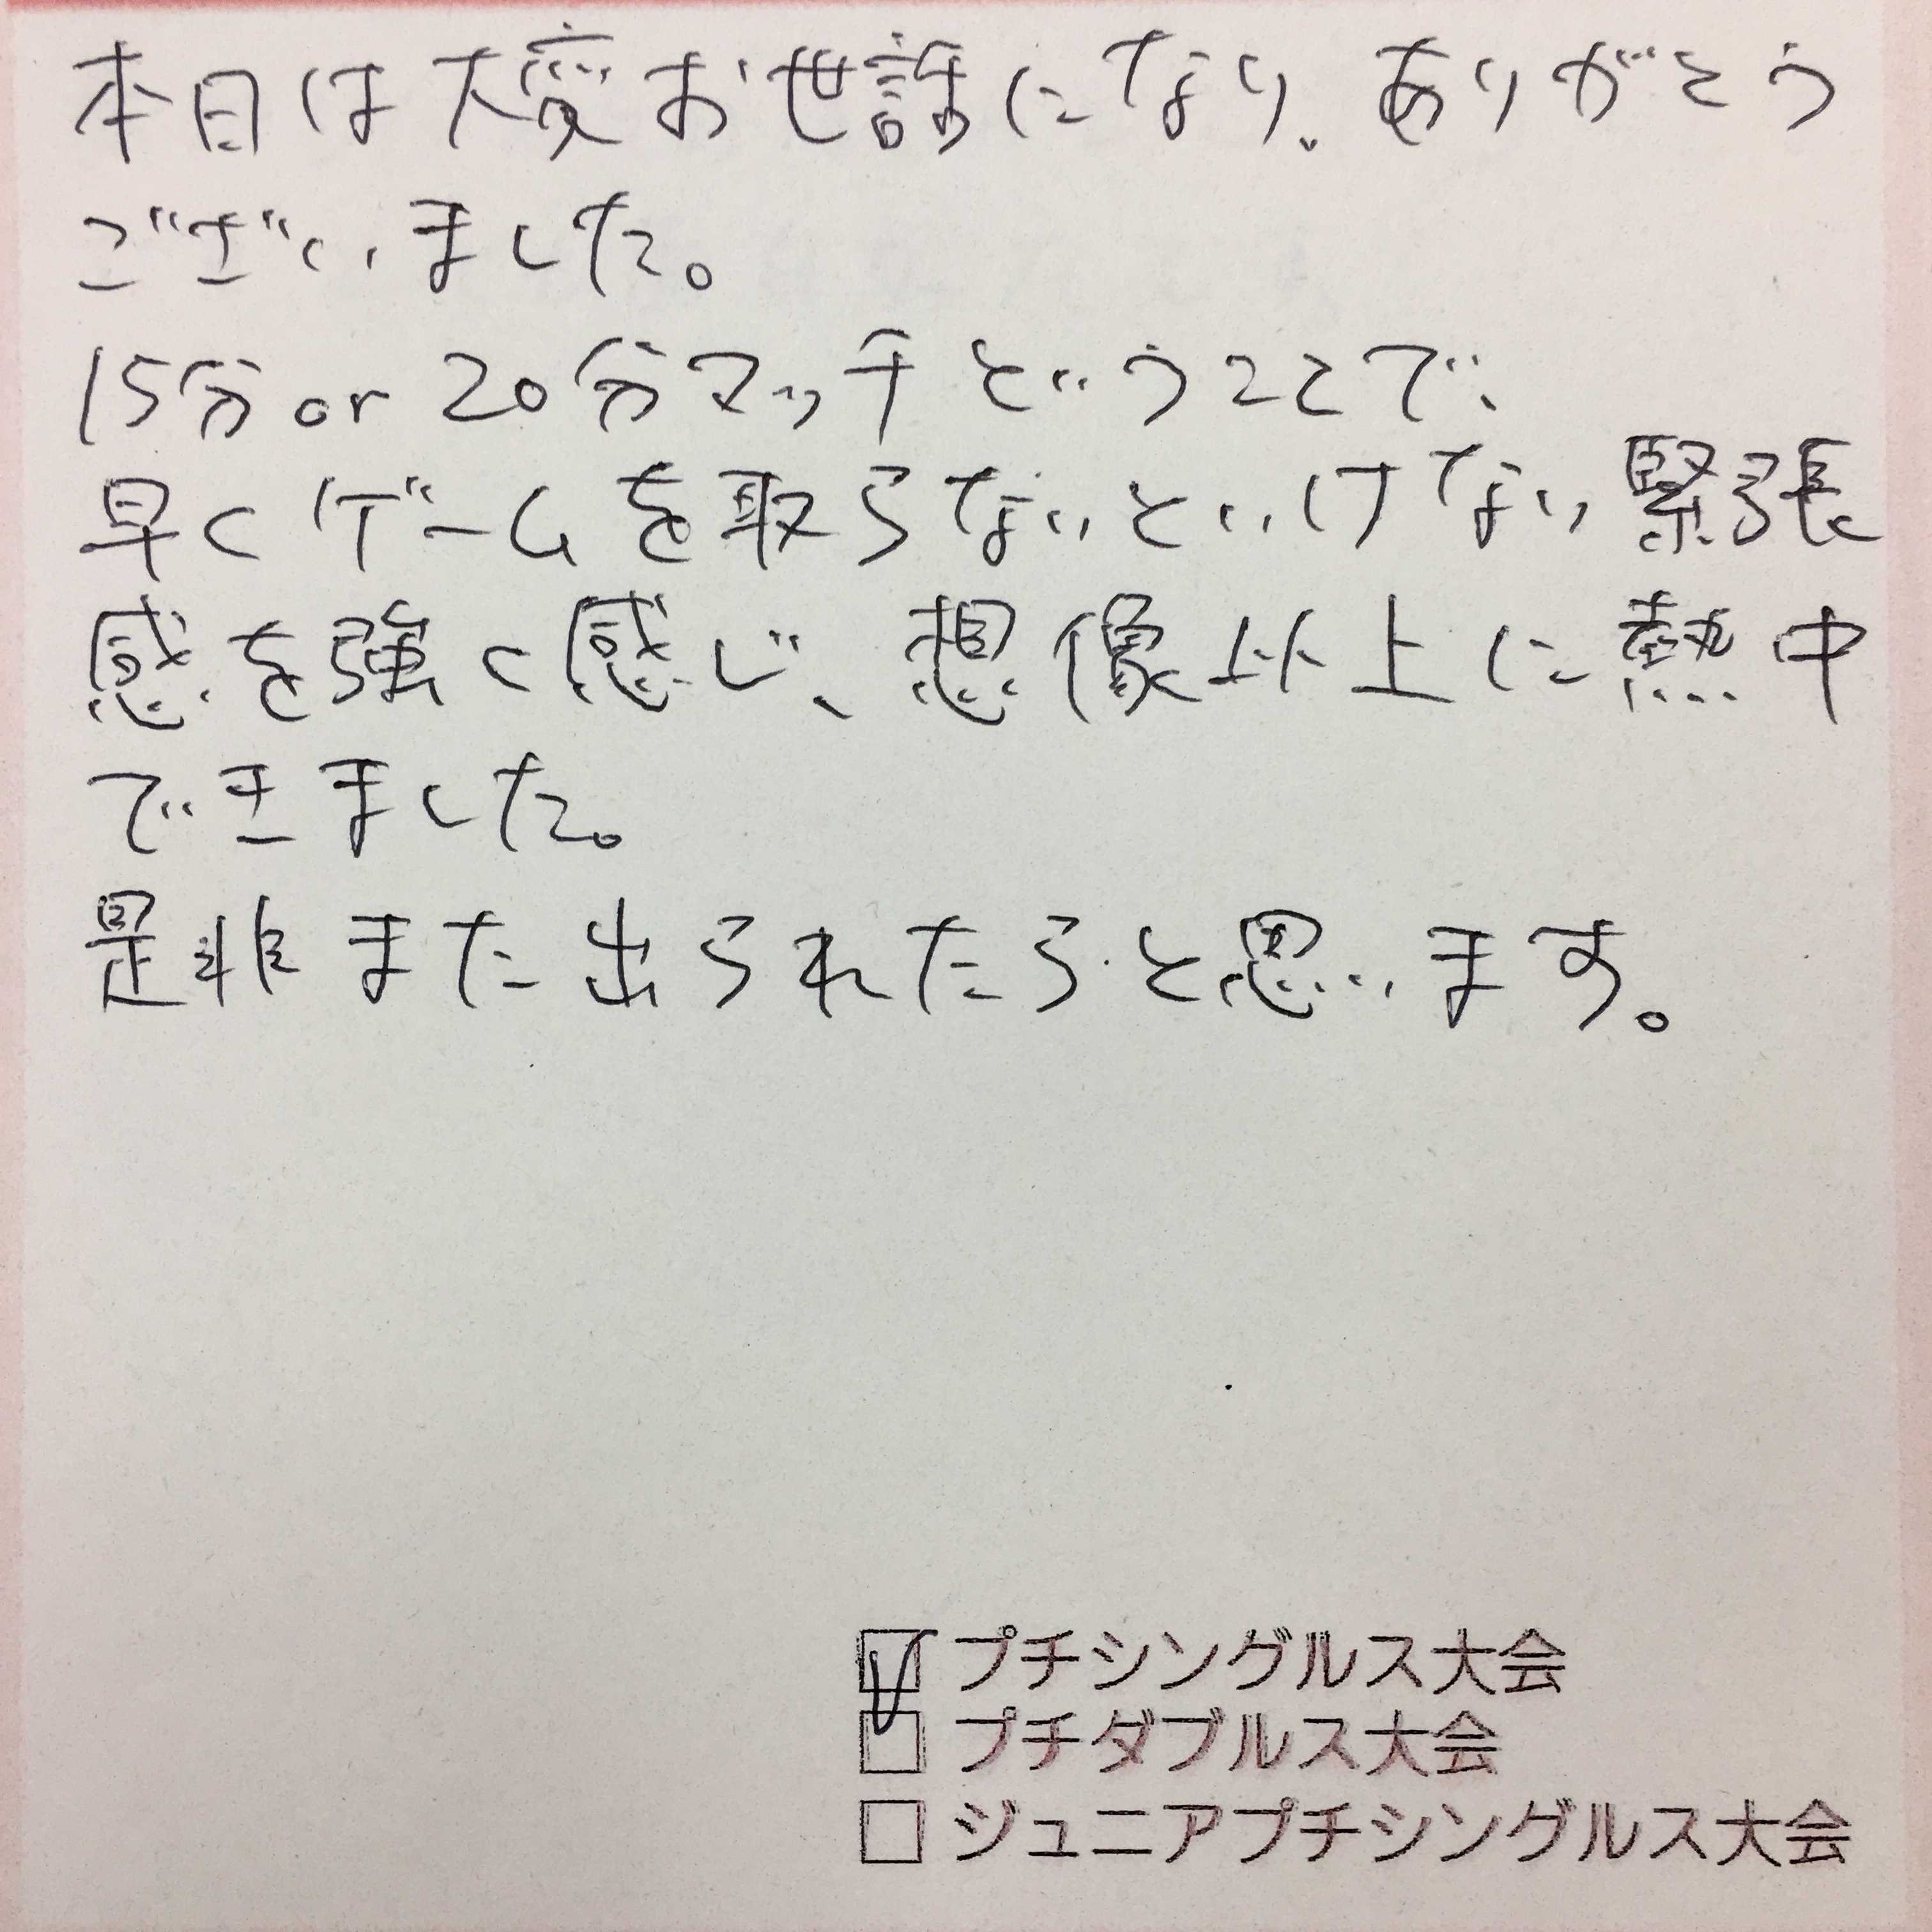 本日は大変お世話になり、ありがとう
ございました。
15分or20分マッチということで、
早くゲームを取らないといけない緊張
感を強く感じ、想像以上に熱中
できました。
是非また出られたらと思います。
☑プチシングルス大会
□プチダブルス大会
□ジュニアプチシングルス大会